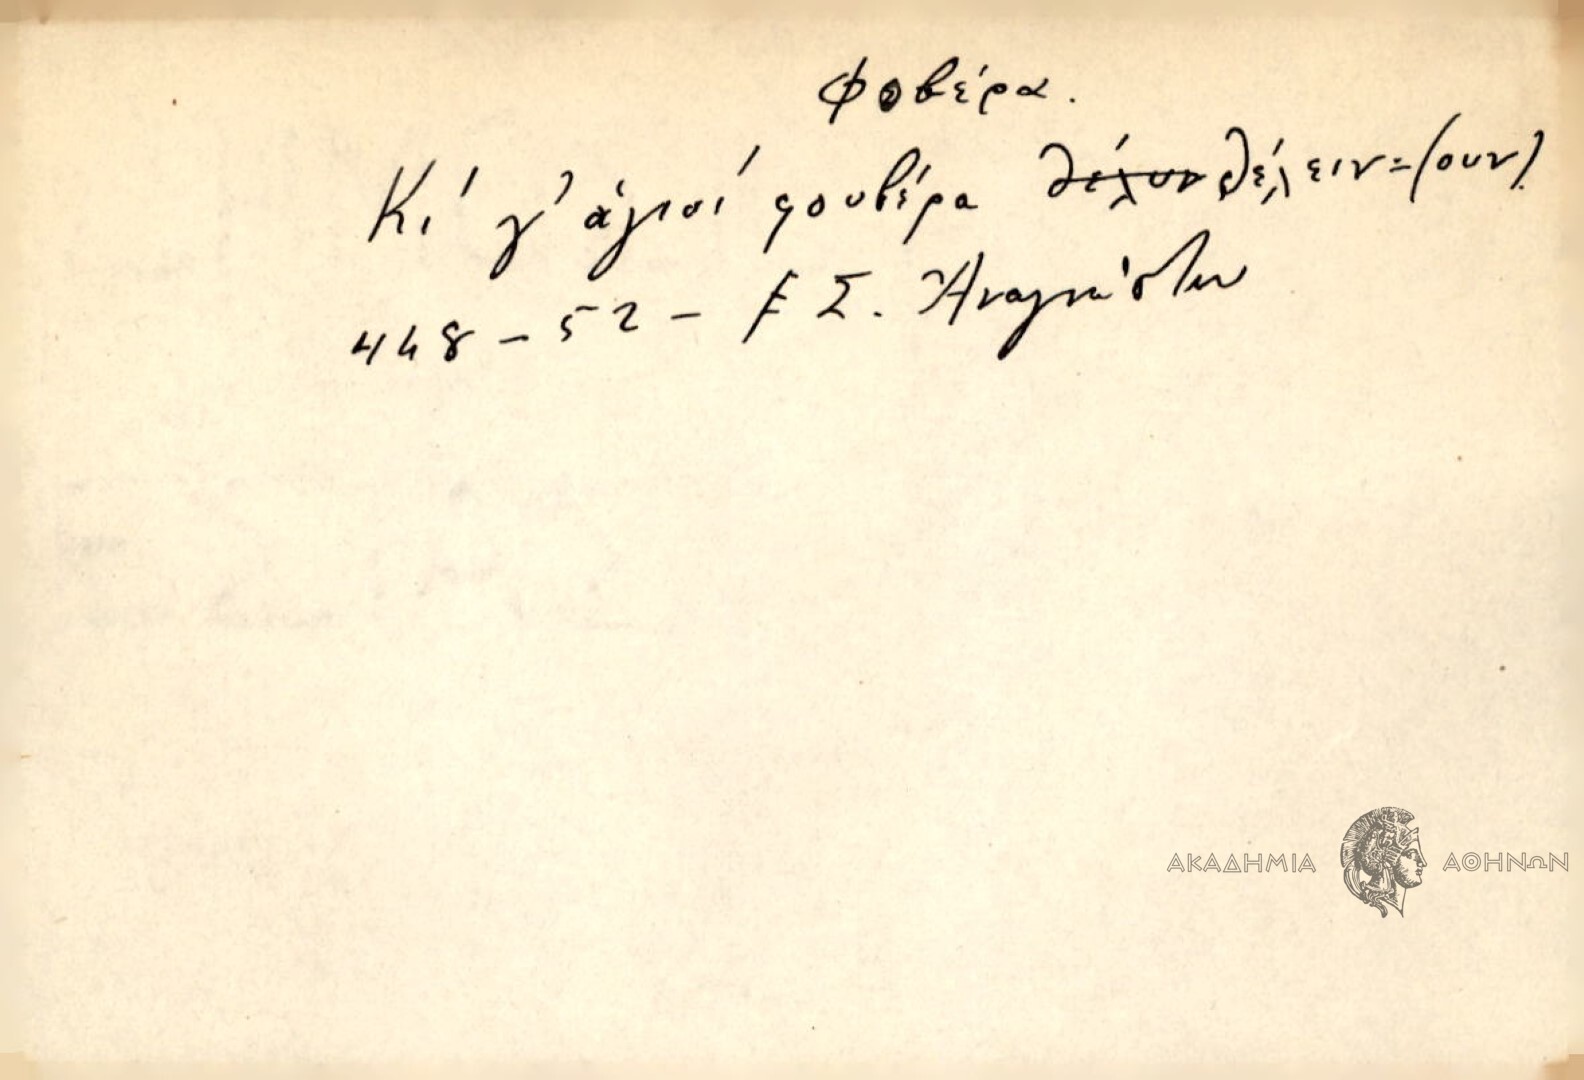 Φοβέρα.
Κι' γ' άγιοί φουβέρα θέλουν θέλειν=(ουν)
448-52- Σ. Αναγνώστου
ΑΚΑΔΗΜΙΑ ΑΘΗΝΩΝ